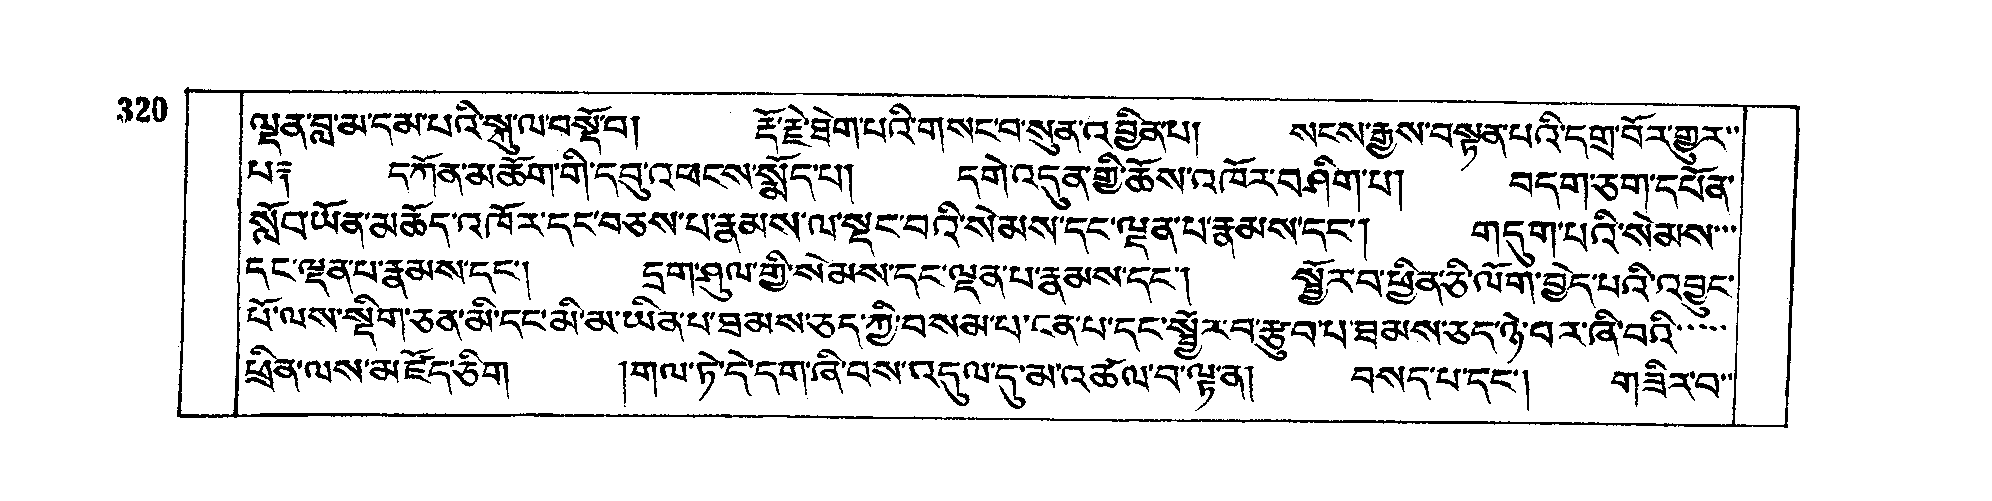 320
ལྡན་བླ་མ་དམ་པའི་སྐུ་ལ་བསྡོ་བ། རྡོ་རྗེ་ཐེག་པའི་གསང་བ་སུན་འབྱིན་པ། སངས་རྒྱས་བསྟན་པའི་དགྲ་བོར་གྱུར་་
པ༔ དཀོན་མཆོག་གི་དབུ་འཕངས་སྨོད་པ། དགེ་འདུན་གྱི་ཆོས་འཁོར་བཤིག་པ། བདག་ཅག་དཔོན་
སློབ་ཡོན་མཆོད་འཁོར་དང་བཅས་པ་རྣམས་ལ་སྡང་བའི་སེམས་དང་ལྡན་པ་རྣམས་དང་། གདུག་པའི་སེམས་་་
དང་ལྡན་པ་རྣམས་དང་། དྲག་ཤུལ་གྱི་སེམས་དང་ལྡན་པ་རྣམས་དང་། སྦྱོར་བ་ཕྱིན་ཅི་ལོག་བྱེད་པའི་འབྱུང་
པོ་ལས་སྡིག་ཅན་མི་དང་མི་མ་ཡིན་པ་ཐམས་ཅད་ཀྱི་བསམ་པ་ངན་པ་དང་སྦྱོར་བ་རྩུབ་པ་ཐམས་ཅད་ཉེ་བར་ཞི་བའི་་་་་
ཕྲིན་ལས་མཛོད་ཅིག །གལ་ཏེ་དེ་དག་ཞི་བས་འདུལ་དུ་མ་འཚལ་བ་ལྟ་ན། བསད་པ་དང་། གཟིར་བ་་